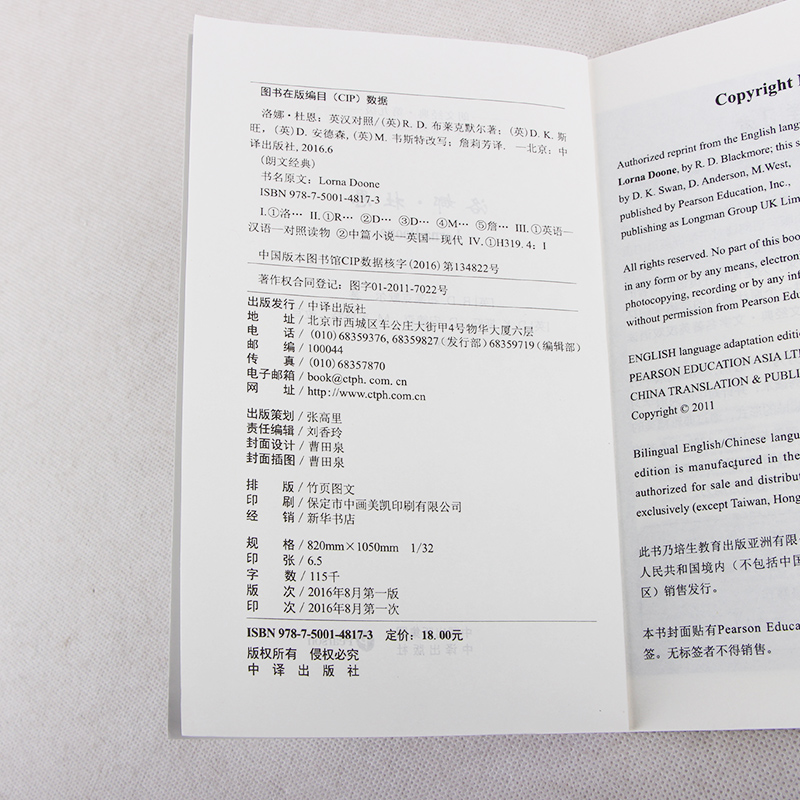 图书在版编目（CIP）数据
洛娜·杜恩：英汉对照/(英)R. D. 布莱克默尔著；(英)D. K. 斯
旺，(英)D. 安德森，(英)M. 韦斯特改写；詹莉芳译. —北京：中
译出版社, 2016.6
（朗文经典）
书名原文：Lorna Doone
ISBN 978-7-5001-4817-3
Ⅰ.①洛… Ⅱ.①R… ②D… ③D… ④M… ⑤詹… Ⅲ.①英语—
汉语—对照读物 ②中篇小说—英国—现代 Ⅳ.①H319.4：I
中国版本图书馆CIP数据核字（2016）第134822号
著作权合同登记：图字01-2011-7022号
出版发行 / 中译出版社
地 址 / 北京市西城区车公庄大街甲4号物华大厦六层
电 话 / (010) 68359376, 68359827（发行部）68359719（编辑部）
邮 编 / 100044
传 真 / (010) 68357870
电子邮箱 / book@ctph.com.cn
网 址 / http://www.ctph.com.cn
出版策划 / 张高里
责任编辑 / 刘香玲
封面设计 / 曹田泉
封面插图 / 曹田泉
排 版 / 竹页图文
印 刷 / 保定市中画美凯印刷有限公司
经 销 / 新华书店
规 格 / 820mm×1050mm 1/32
印 张 / 6.5
字 数 / 115千
版 次 / 2016年8月第一版
印 次 / 2016年8月第一次
ISBN 978-7-5001-4817-3 定价：18.00元
版权所有 侵权必究
中 译 出 版 社
Copyright
Authorized reprint from the English
Lorna Doone, by R. D. Blackmore; this
by D. K. Swan, D. Anderson, M.West,
published by Pearson Education, Inc.,
publishing as Longman Group UK
All rights reserved. No part of this
in any form or by any means,
photocopying, recording or by any
without permission from Pearson
ENGLISH language adaptation
PEARSON EDUCATION ASIA
CHINA TRANSLATION &
Copyright © 2011
Bilingual English/Chinese
edition is manufactured in the
authorized for sale and
exclusively (except Taiwan, Hong
此书乃培生教育出版亚洲有限
人民共和国境内（不包括中国
区）销售发行。
本书封面贴有Pearson
签。无标签者不得销售。